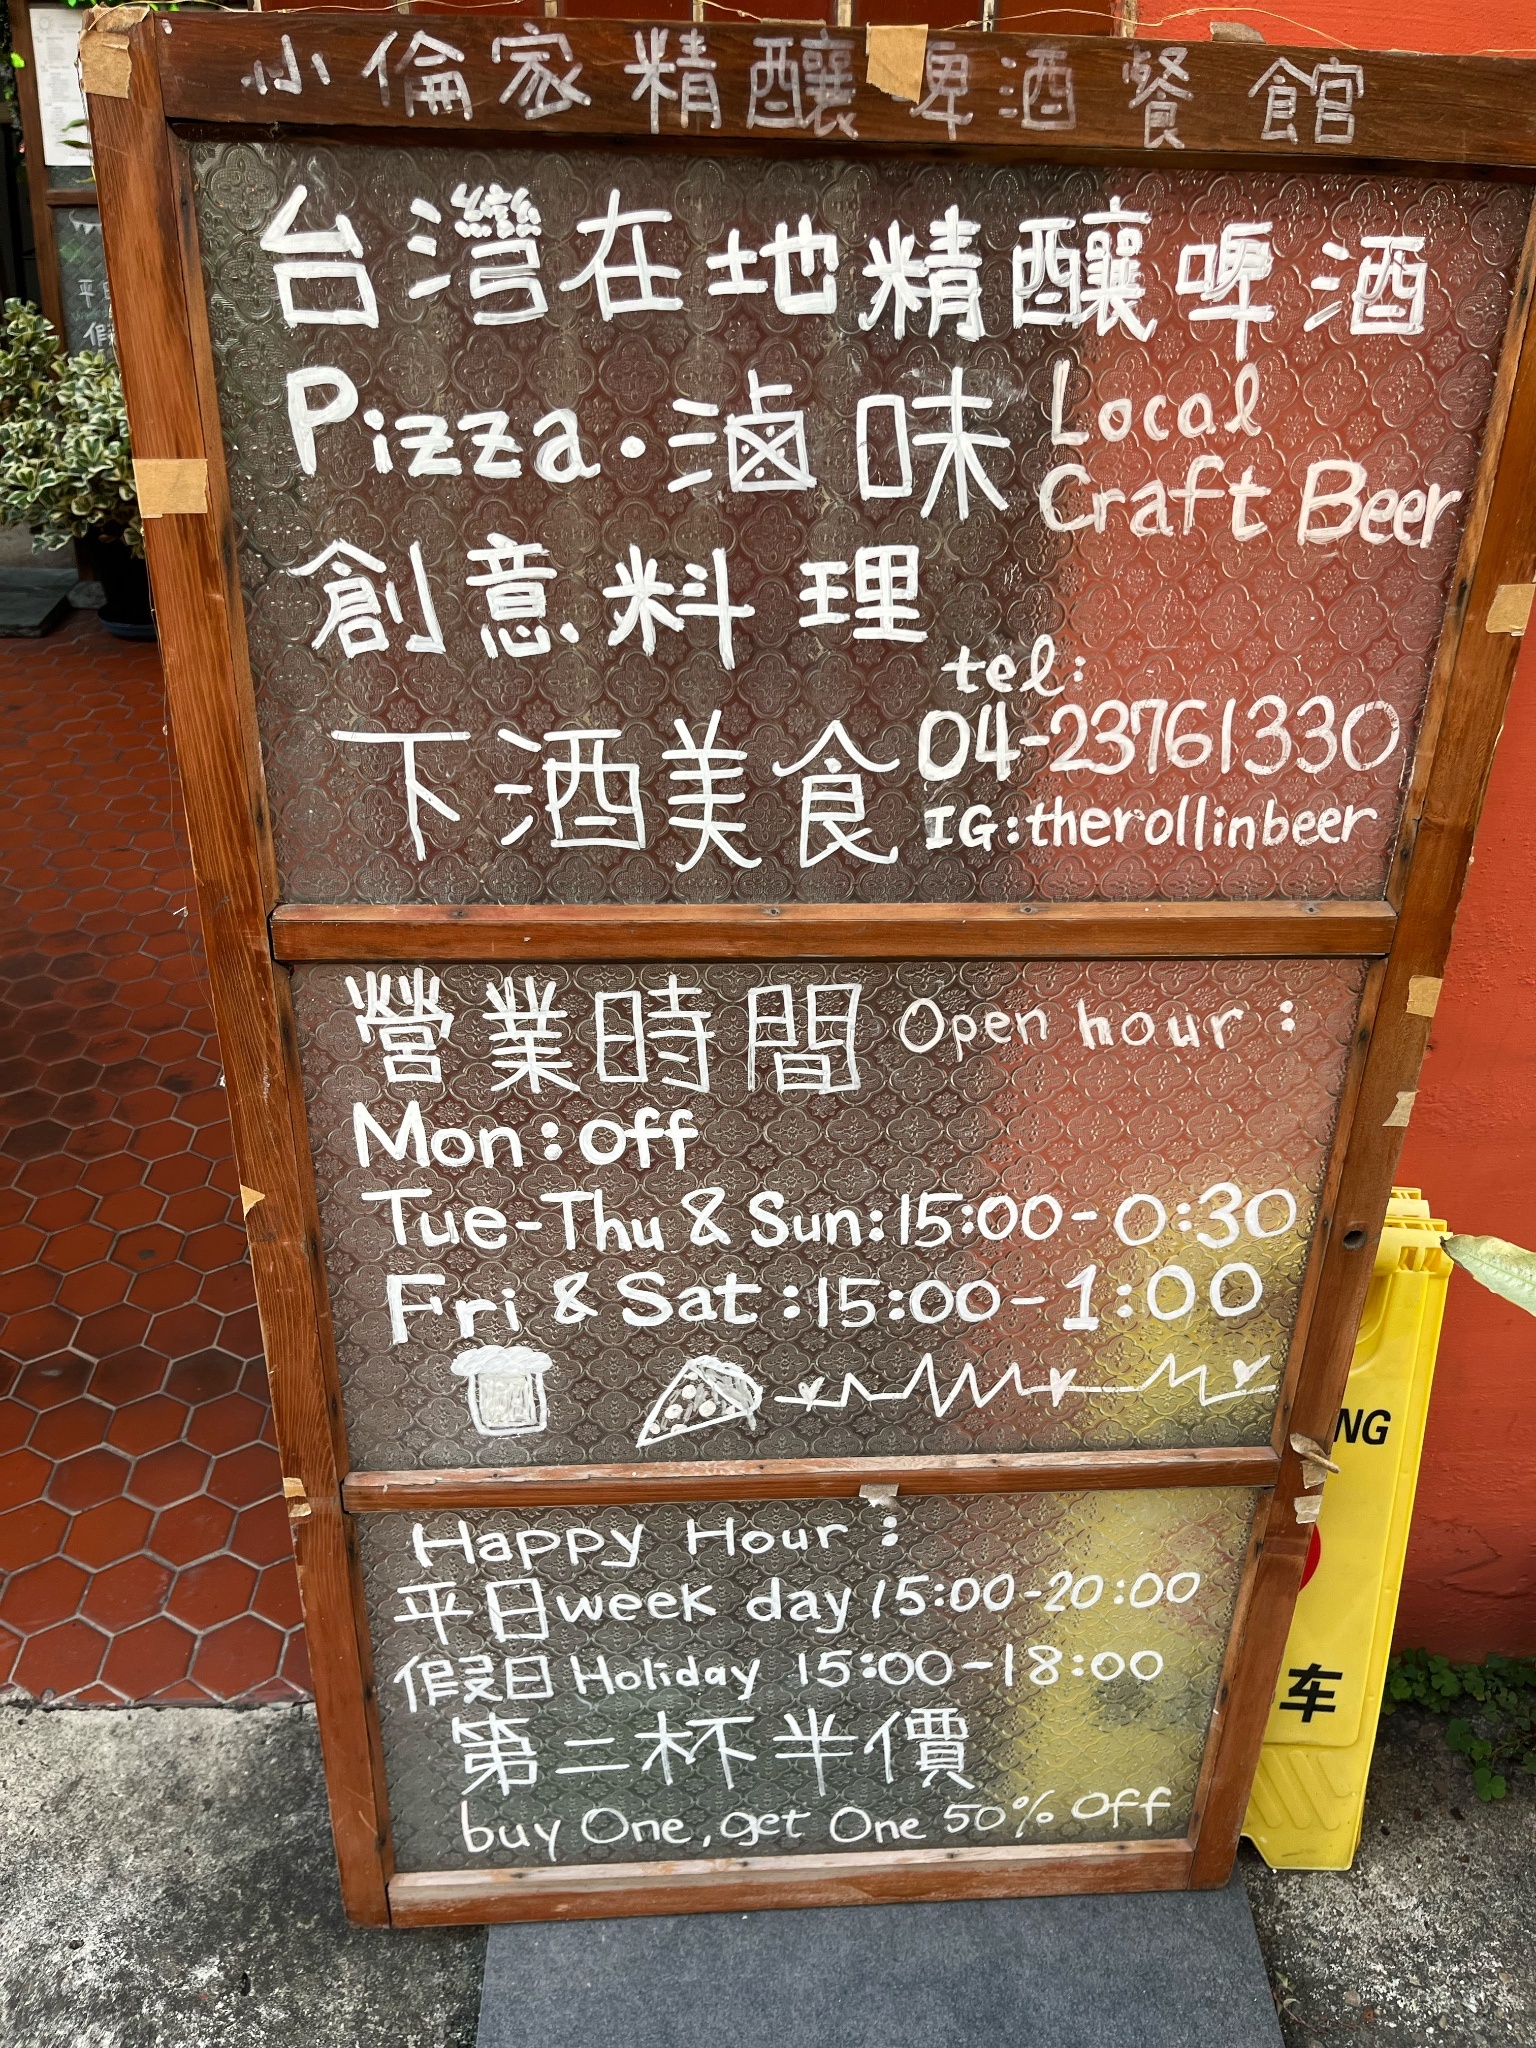 小倫家精釀啤酒餐館
台灣在地精釀啤酒
Pizza·滷味
Local
Craft Beer
創意料理
下酒美食
tel:
04-23761330
IG:therollinbeer
營業時間 Open hour:
Mon:off
Tue-Thu & Sun:15:00-0:30
Fri & Sat:15:00-1:00
Happy Hour:
平日week day 15:00-20:00
假日Holiday 15:00-18:00
第二杯半價
buy One, get One 50% Off
NG
车